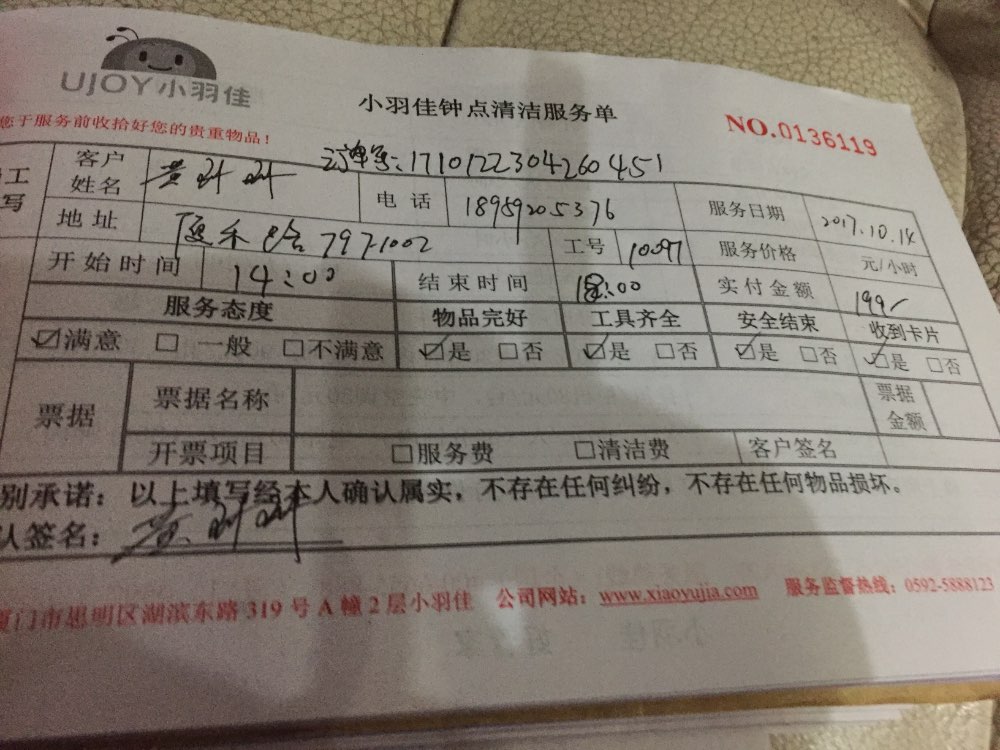 UJOY小羽佳
小羽佳钟点清洁服务单
NO.0136119
您于服务前收拾好您的贵重物品!
订单号:1710122304260451
工 写
客户姓名 黄
电话 18959205376
服务日期 2017.10.14
地址 797-1002
工号 10097
服务价格 元/小时
开始时间 14:00
结束时间 18:00
实付金额 199-
服务态度 物品完好 工具齐全 安全结束 收到卡片
☑满意 □一般 □不满意 ☑是 □否 ☑是 □否 ☑是 □否 ☑是 □否
票据 票据名称 票据金额
开票项目 □服务费 □清洁费 客户签名
别承诺:以上填写经本人确认属实,不存在任何纠纷,不存在任何物品损坏。
认签名:黄
厦门市思明区湖滨东路319号A幢2层小羽佳 公司网站:www.xiaoyujia.com 服务监督热线:0592-5888123